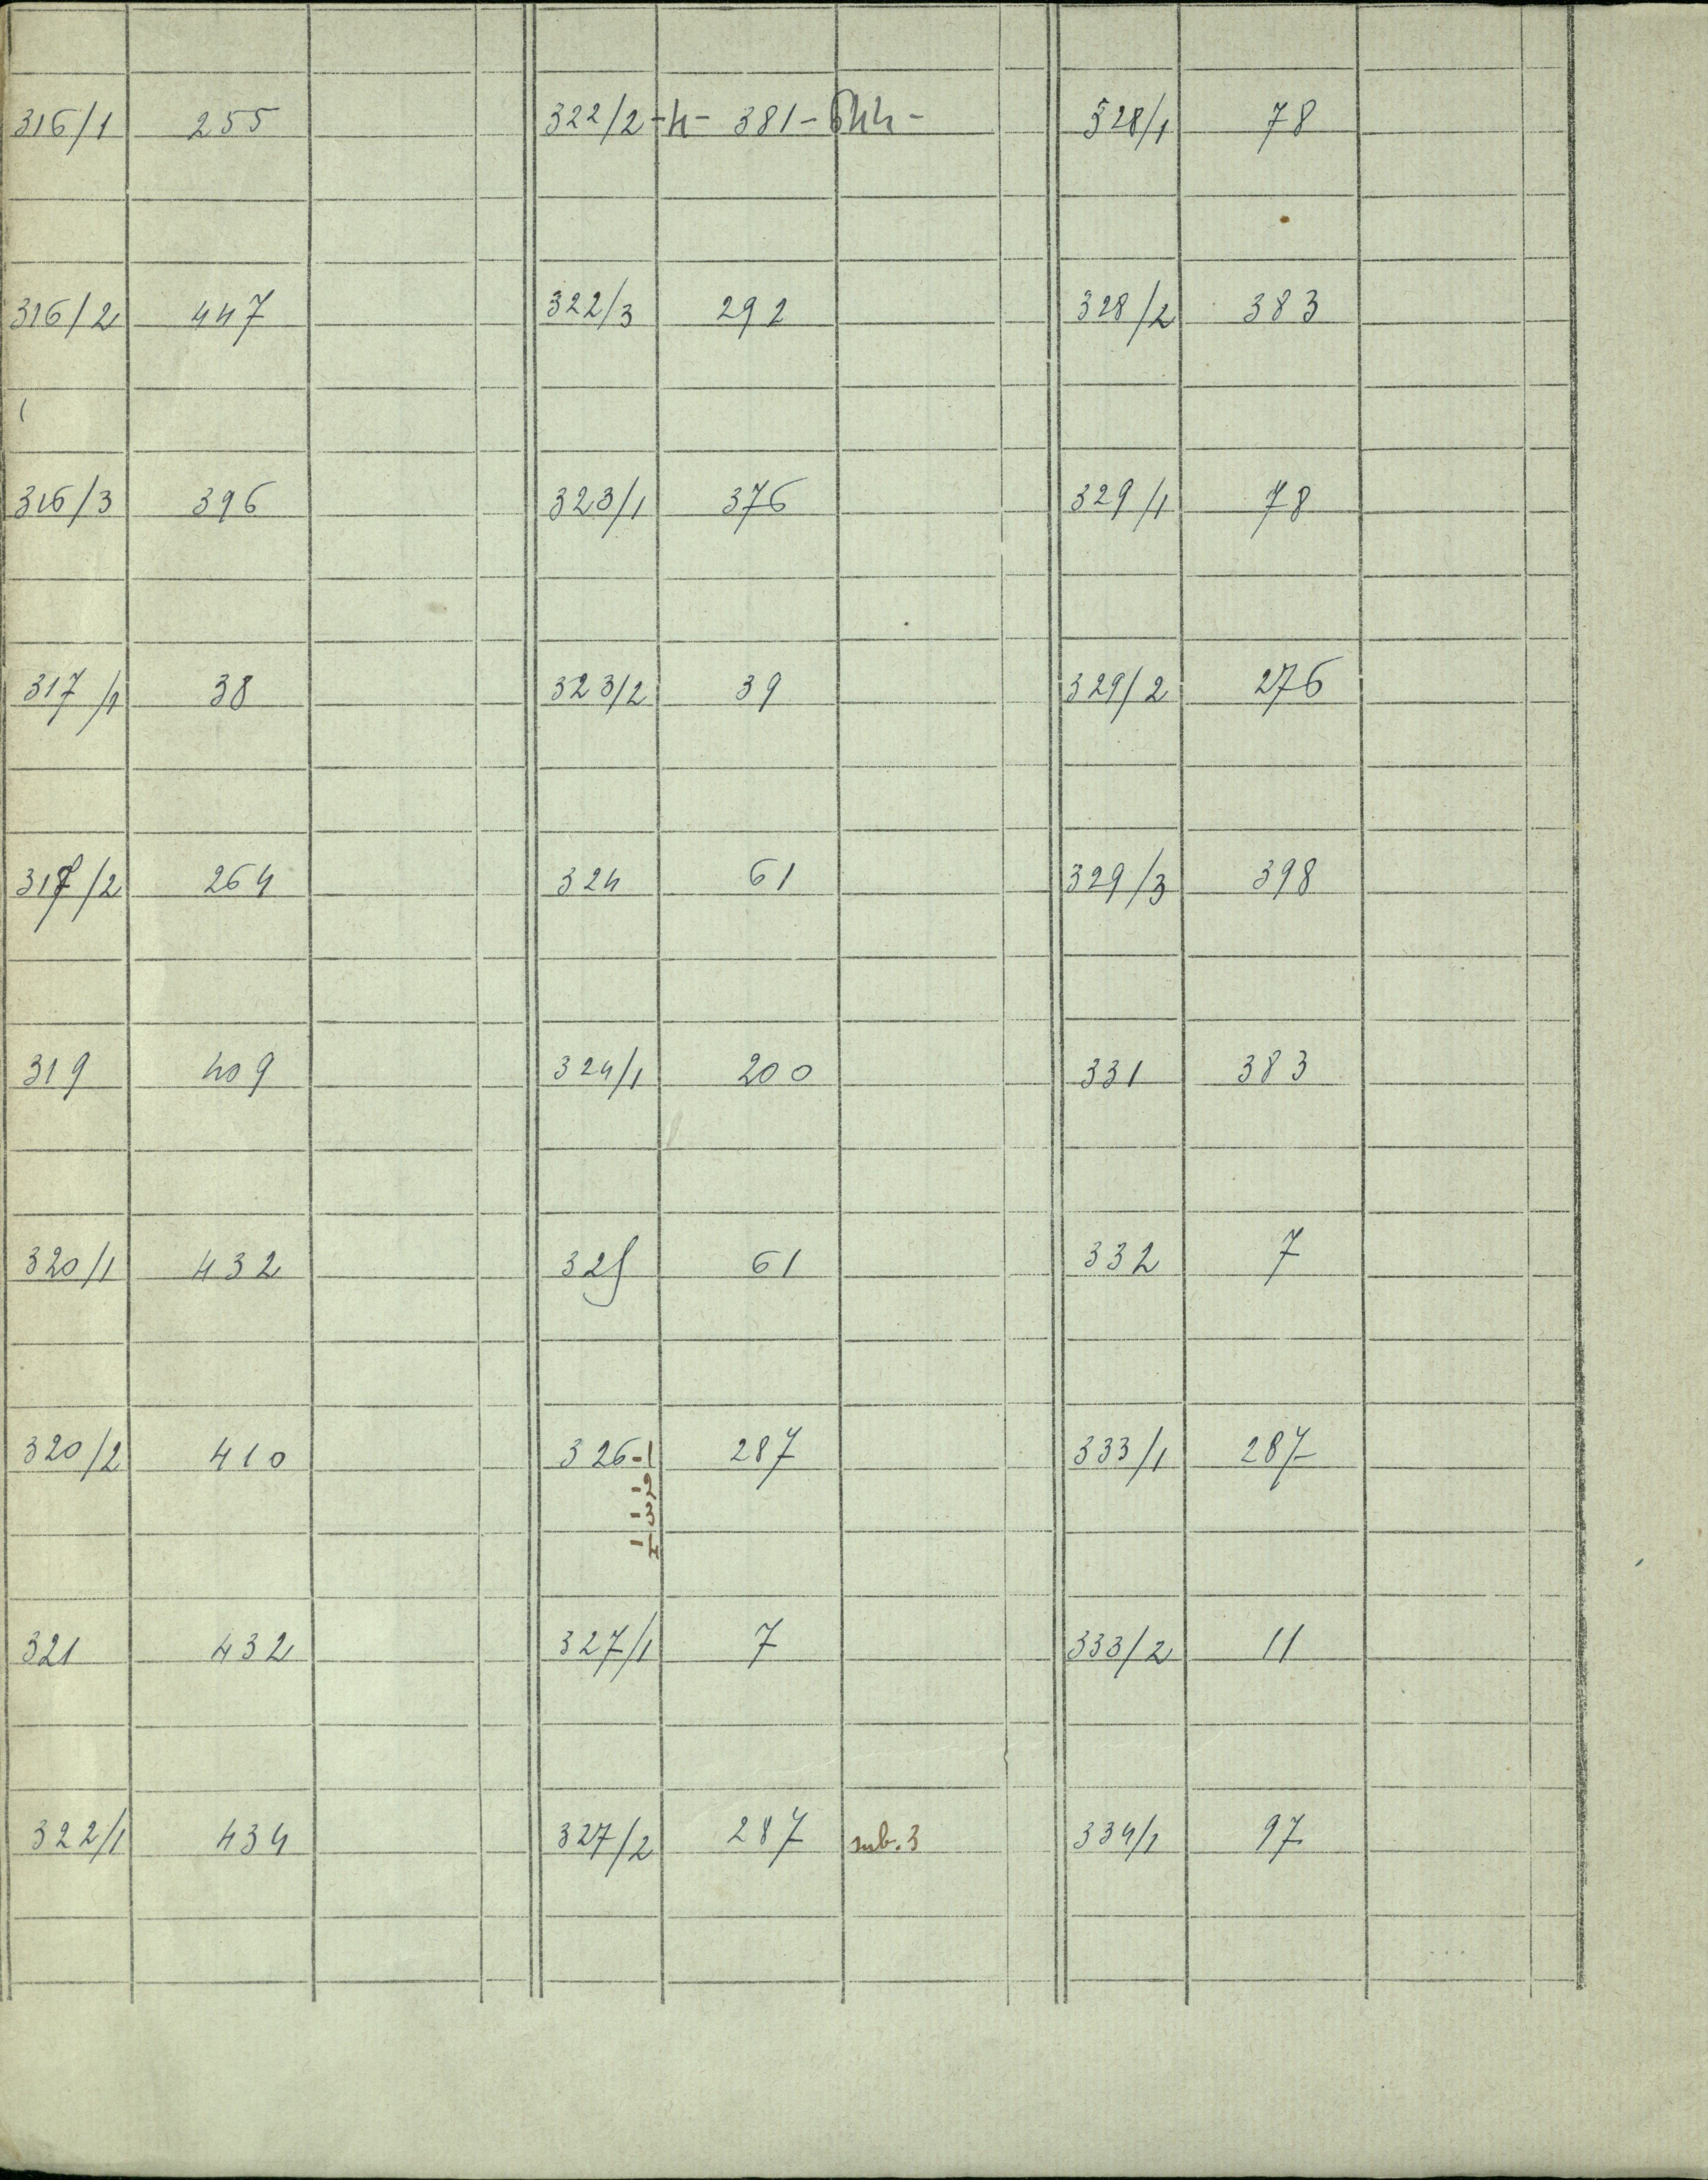 316/1 255
316/2 447
316/3 396
317/1 38
317/2 264
319 409
320/1 432
320/2 410
321 432
322/1 434
322/2 -4- 381 - 544 -
322/3 292
323/1 376
323/2 39
324 61
324/1 200
325 61
326-1 287
-2
-3
-I
327/1 7
327/2 287 sub. 3
328/1 78
328/2 383
329/1 78
329/2 276
329/3 398
331 383
332 7
333/1 287
333/2 11
334/1 97